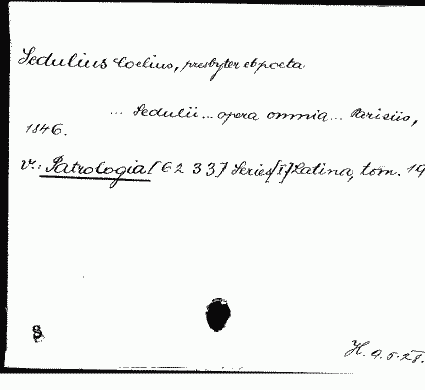 Sedulius Coelius, presbyter et poeta
... Sedulii ... opera omnia ... Parisiis,
1846.
v.: Patrologia [6233] Series [I] Latina, tom. 19
S
H. 9.5.28.